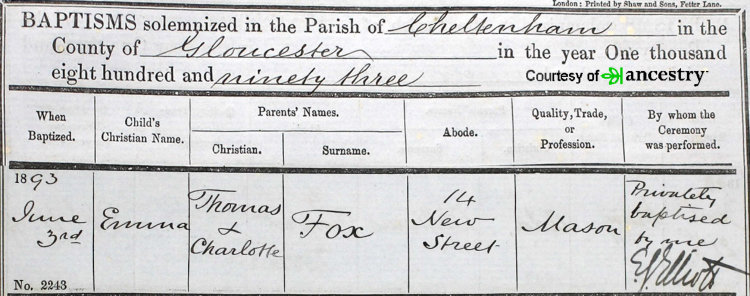 London: Printed by Shaw and Sons, Fetter Lane.
BAPTISMS solemnized in the Parish of Cheltenham in the
County of Gloucester in the year One thousand
eight hundred and ninety three
Courtesy of ancestry
When Baptized.
Child's Christian Name.
Parents' Names.
Christian.
Surname.
Abode.
Quality, Trade, or Profession.
By whom the Ceremony was performed.
1893
June
3rd
Emma
Thomas
&
Charlotte
Fox
14
New
Street
Mason
Privately
baptised
by me
E J Elliott
No. 2243